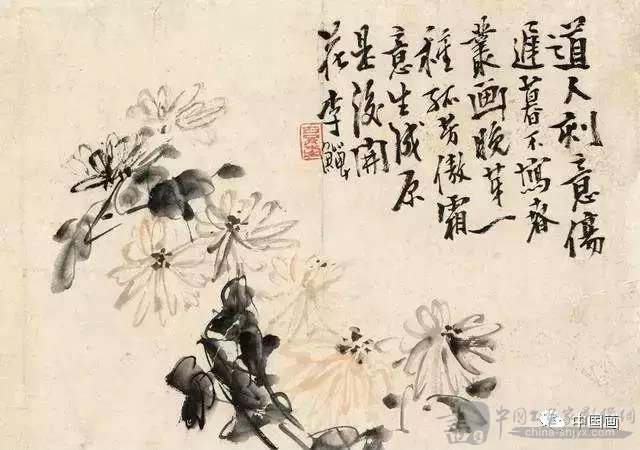 道人刻意傷
遲暮不寫春
叢画晚芽一
種孤芳傲霜
意生成原
是後開
花李鱓
china-shjyx.com
中国画